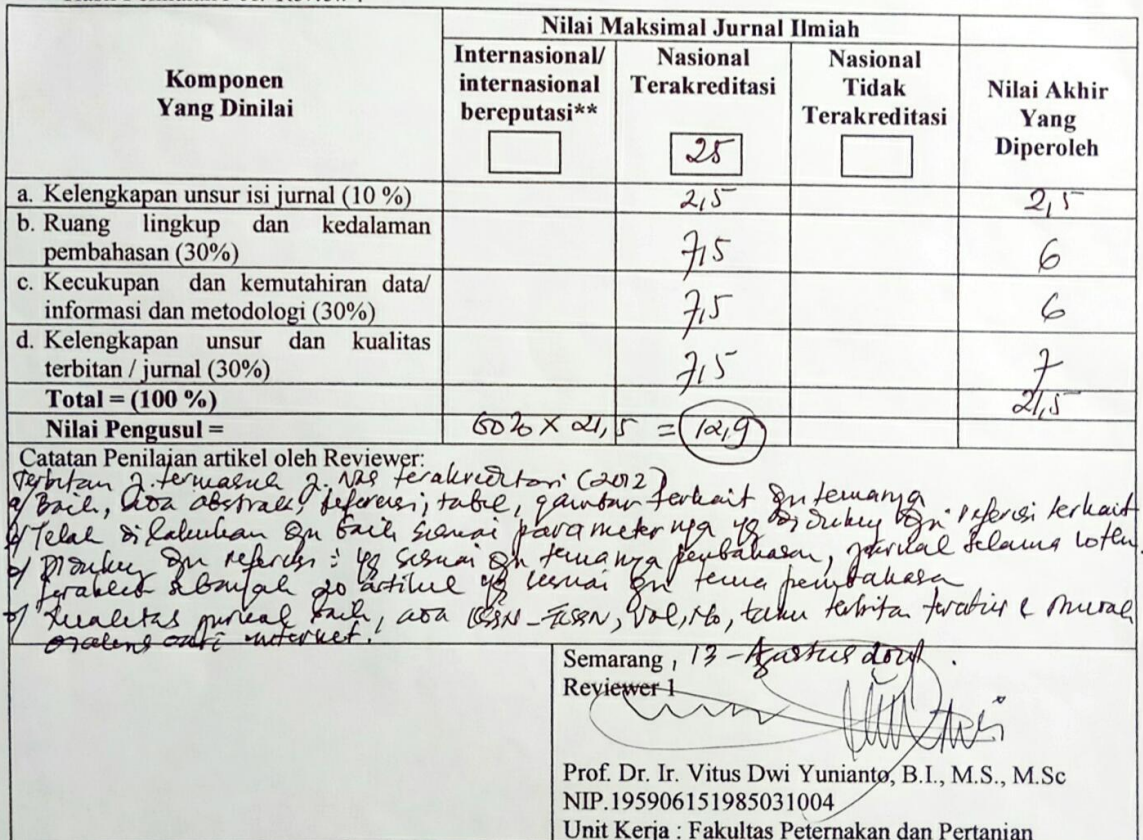 Nilai Maksimal Jurnal Ilmiah
Komponen
Yang Dinilai
Internasional/
internasional
bereputasi**
Nasional
Terakreditasi
25
Nasional
Tidak
Terakreditasi
Nilai Akhir
Yang
Diperoleh
a. Kelengkapan unsur isi jurnal (10 %) 2,5 2,5
b. Ruang lingkup dan kedalaman
pembahasan (30%) 7,5 6
c. Kecukupan dan kemutahiran data/
informasi dan metodologi (30%) 7,5 6
d. Kelengkapan unsur dan kualitas
terbitan / jurnal (30%) 7,5 7
Total = (100 %) 21,5
Nilai Pengusul = 60% X 21,5 = 12,9
Catatan Penilaian artikel oleh Reviewer:
Terbitan J. termasuk J. Nas terakreditasi (2012)
a/ Baik, ada abstrak, referensi, tabel, gambar terkait dn temanya
b/ Telah dilakukan dn baik sesuai parameternya yg didukung dn referensi terkait
dn referensi yg sesuai dn temanya pembahasan, jurnal selama
sebanyak 20 artikel yg sesuai dn tema pembahasa
d/ Kualitas jurnal baik, ada ISSN, Vol, No,
internet.
Semarang, 13 - Agustus
Reviewer 1
Prof. Dr. Ir. Vitus Dwi Yunianto, B.I., M.S., M.Sc
NIP.195906151985031004
Unit Kerja : Fakultas Peternakan dan Pertanian